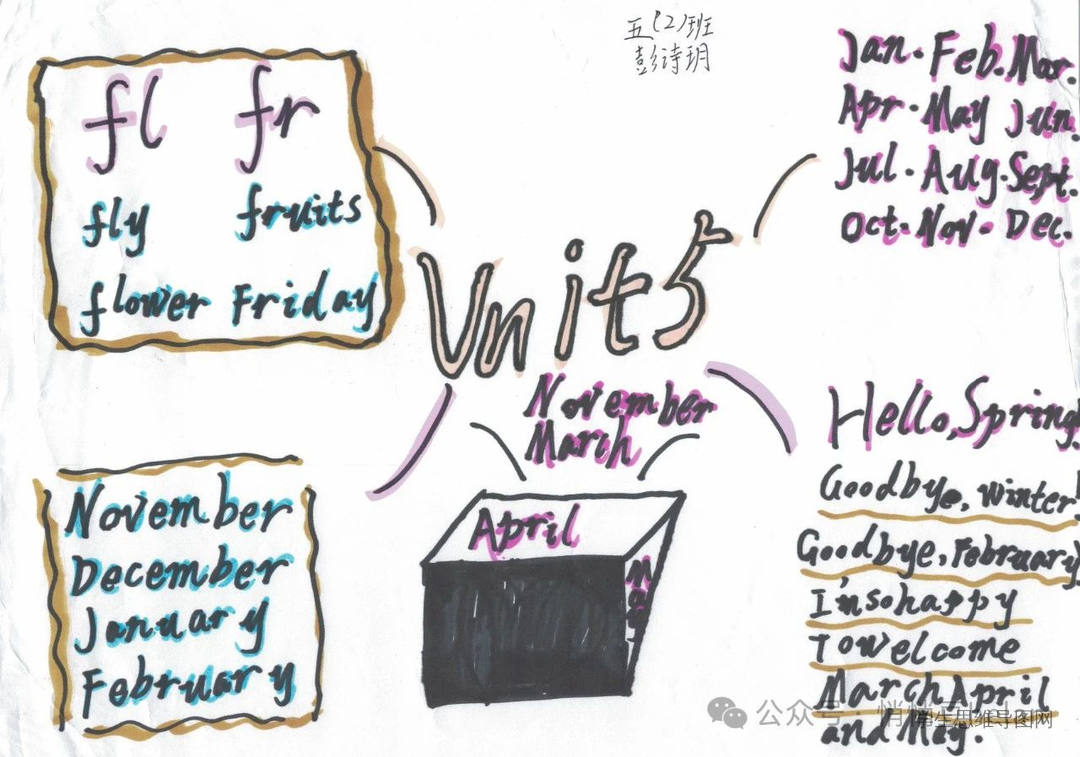 五(2)班
彭诗玥
fl fr
fly fruits
flower Friday
Jan. Feb. Mar.
Apr. May Jun.
Jul. Aug. Sept.
Oct. Nov. Dec.
Unit5
November
March
April
May
November
December
January
February
Hello, Spring!
Goodbye, winter!
Goodbye, February
I'm so happy
To welcome
March April
and May.
公众号
学生思维导图网